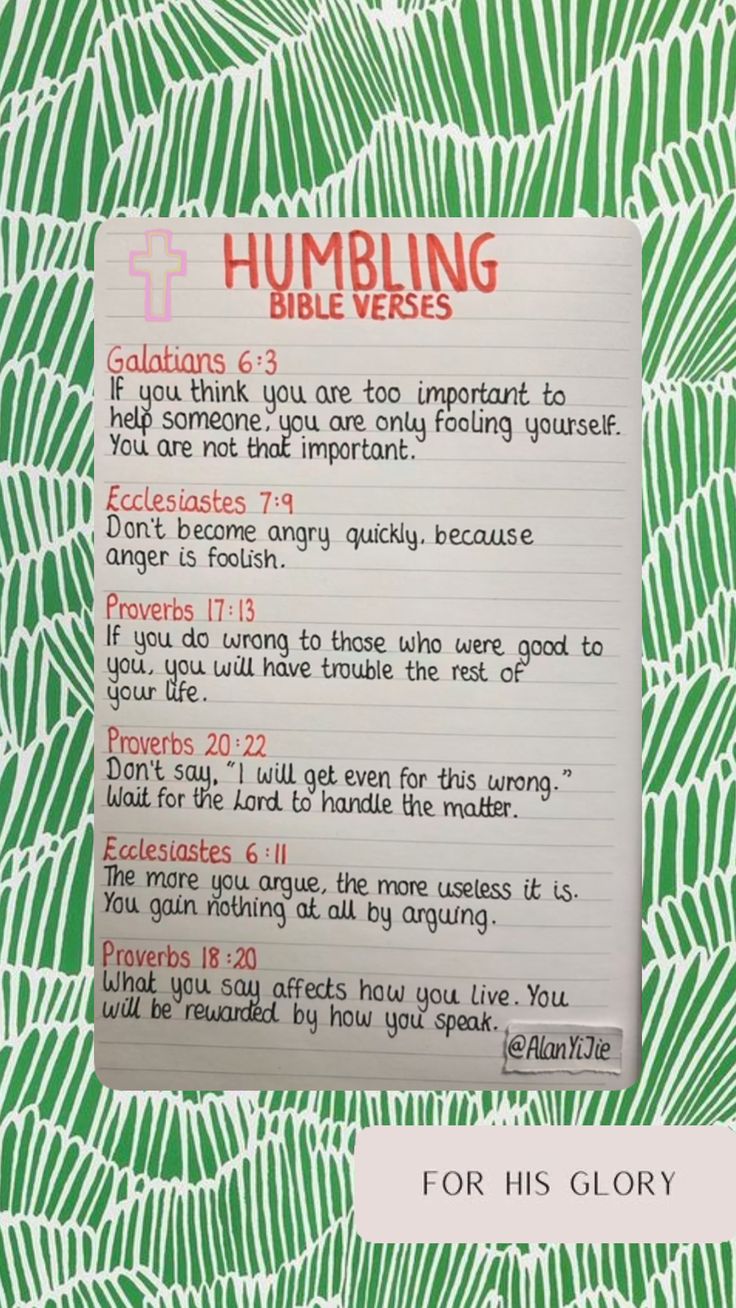 HUMBLING
BIBLE VERSES
Galatians 6:3
If you think you are too important to
help someone, you are only fooling yourself.
You are not that important.
Ecclesiastes 7:9
Don't become angry quickly, because
anger is foolish.
Proverbs 17:13
If you do wrong to those who were good to
you, you will have trouble the rest of
your life.
Proverbs 20:22
Don't say, "I will get even for this wrong."
Wait for the Lord to handle the matter.
Ecclesiastes 6:11
The more you argue, the more useless it is.
You gain nothing at all by arguing.
Proverbs 18:20
What you say affects how you live. You
will be rewarded by how you speak.
@AlanYiJie
FOR HIS GLORY